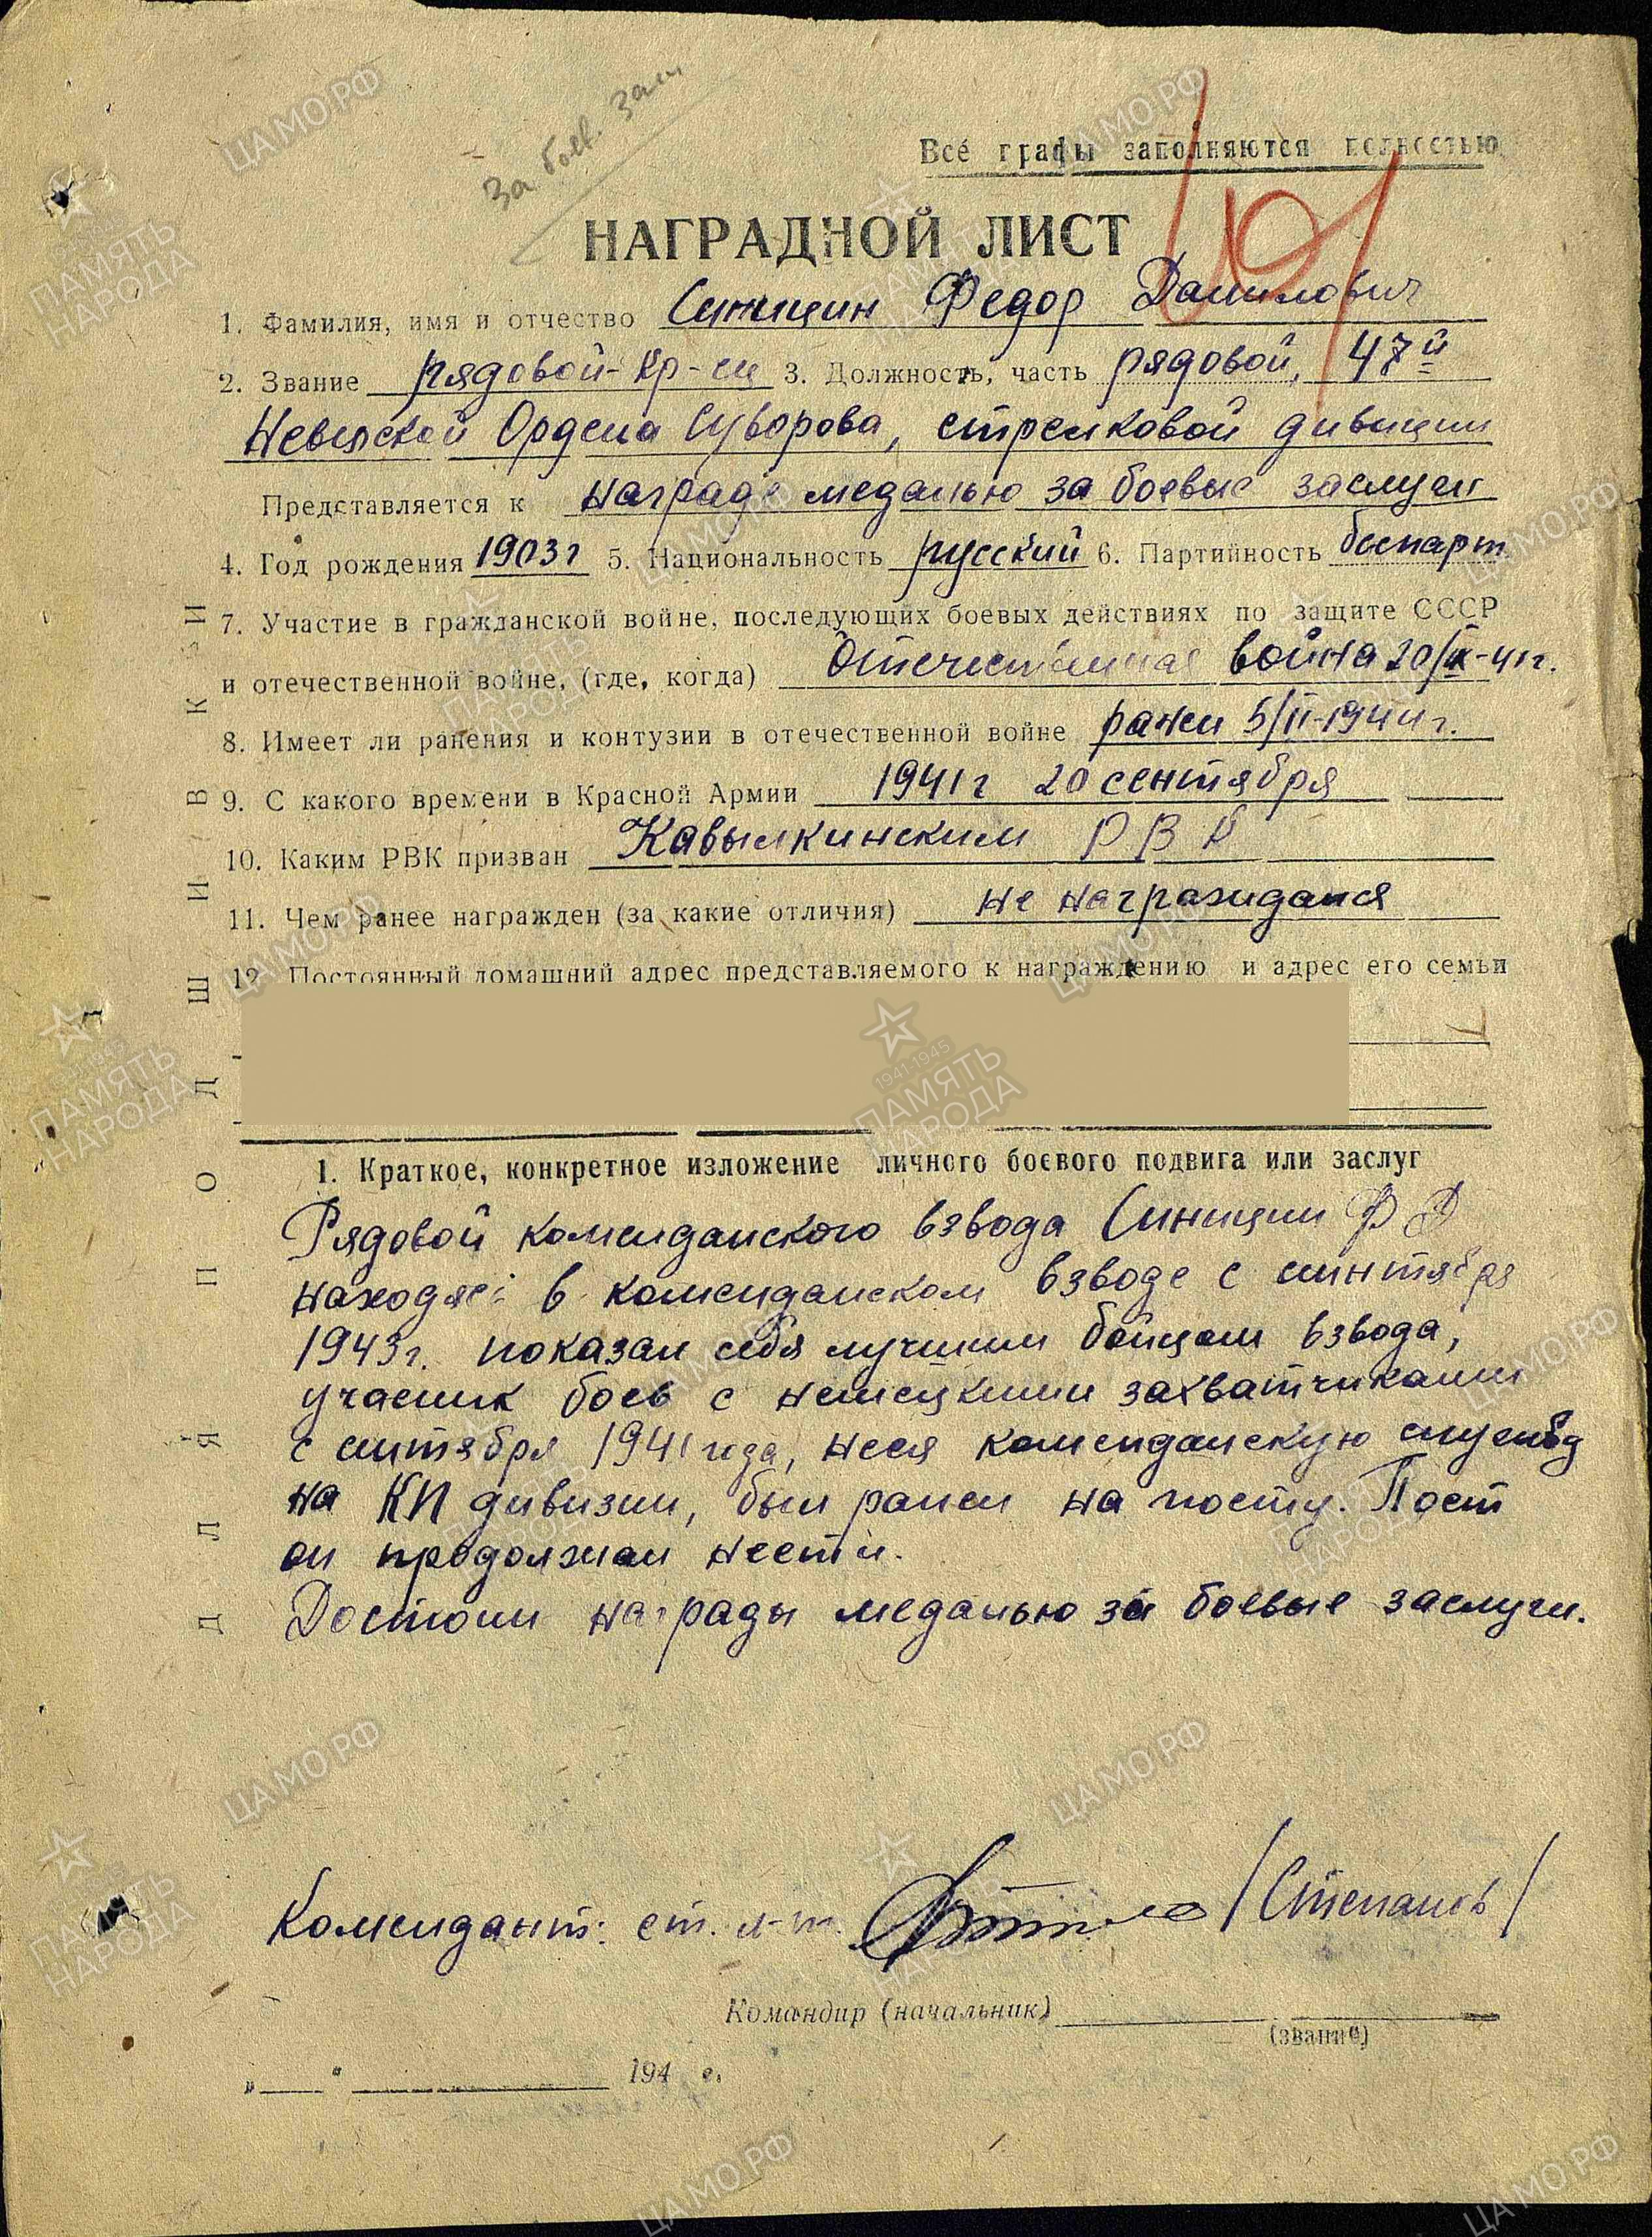 За боев. засл
Все графы заполняются полностью
НАГРАДНОЙ ЛИСТ
1. Фамилия, имя и отчество Синицин Федор Данилович
2. Звание рядовой-кр-ец 3. Должность, часть рядовой, 47й
Невельской Ордена Суворова, стрелковой дивизии
Представляется к награде медалью за боевые заслуги
4. Год рождения 1903г 5. Национальность русский 6. Партийность беспарт
7. Участие в гражданской войне, последующих боевых действиях по защите СССР
и отечественной войне, (где, когда) Отечественная война 20/IX-41г.
8. Имеет ли ранения и контузии в отечественной войне ранен 5/II-1944г.
9. С какого времени в Красной Армии 1941г 20 сентября
10. Каким РВК призван Кавылкинским РВК
11. Чем ранее награжден (за какие отличия) не награждался
12. Постоянный домашний адрес представляемого к награждению и адрес его семьи
1. Краткое, конкретное изложение личного боевого подвига или заслуг
Рядовой комендамского взвода Синицин Ф Д
находясь в комендамском взводе с синтября
1943г. показал себя лучшим бойцом взвода,
учасник боев с немецкими захватчиками
с синтября 1941 года, неся комендамскую службу
на КП дивизии, был ранен на посту. Пост
он продолжал нести.
Достоин награды медалью за боевые заслуги.
Комендант: ст. л-т. /Степанов/
Командир (начальник)
(звание)
„ “ 194 г.
ДЛЯ ПОДШИВКИ
ЦАМО.РФ
ПАМЯТЬ НАРОДА
1941-1945